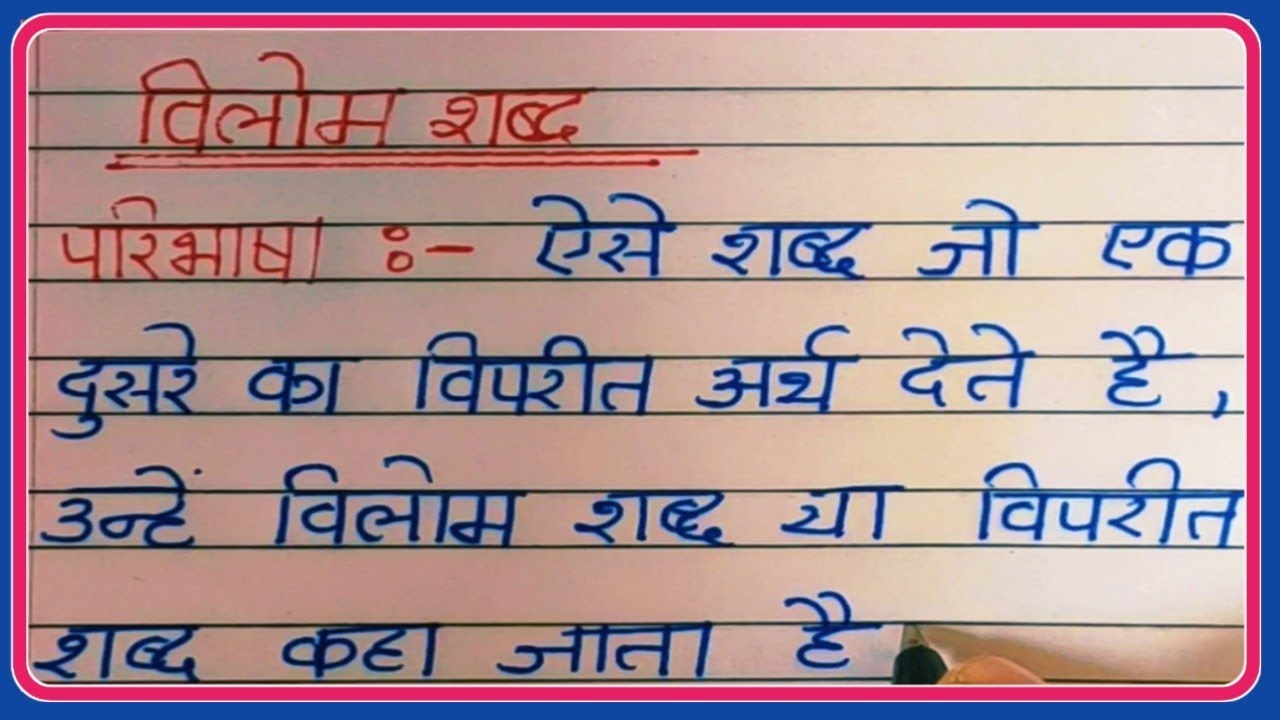 विलोम शब्द
परिभाषा :- ऐसे शब्द जो एक
दुसरे का विपरीत अर्थ देते है,
उन्हें विलोम शब्द या विपरीत
शब्द कहा जाता है